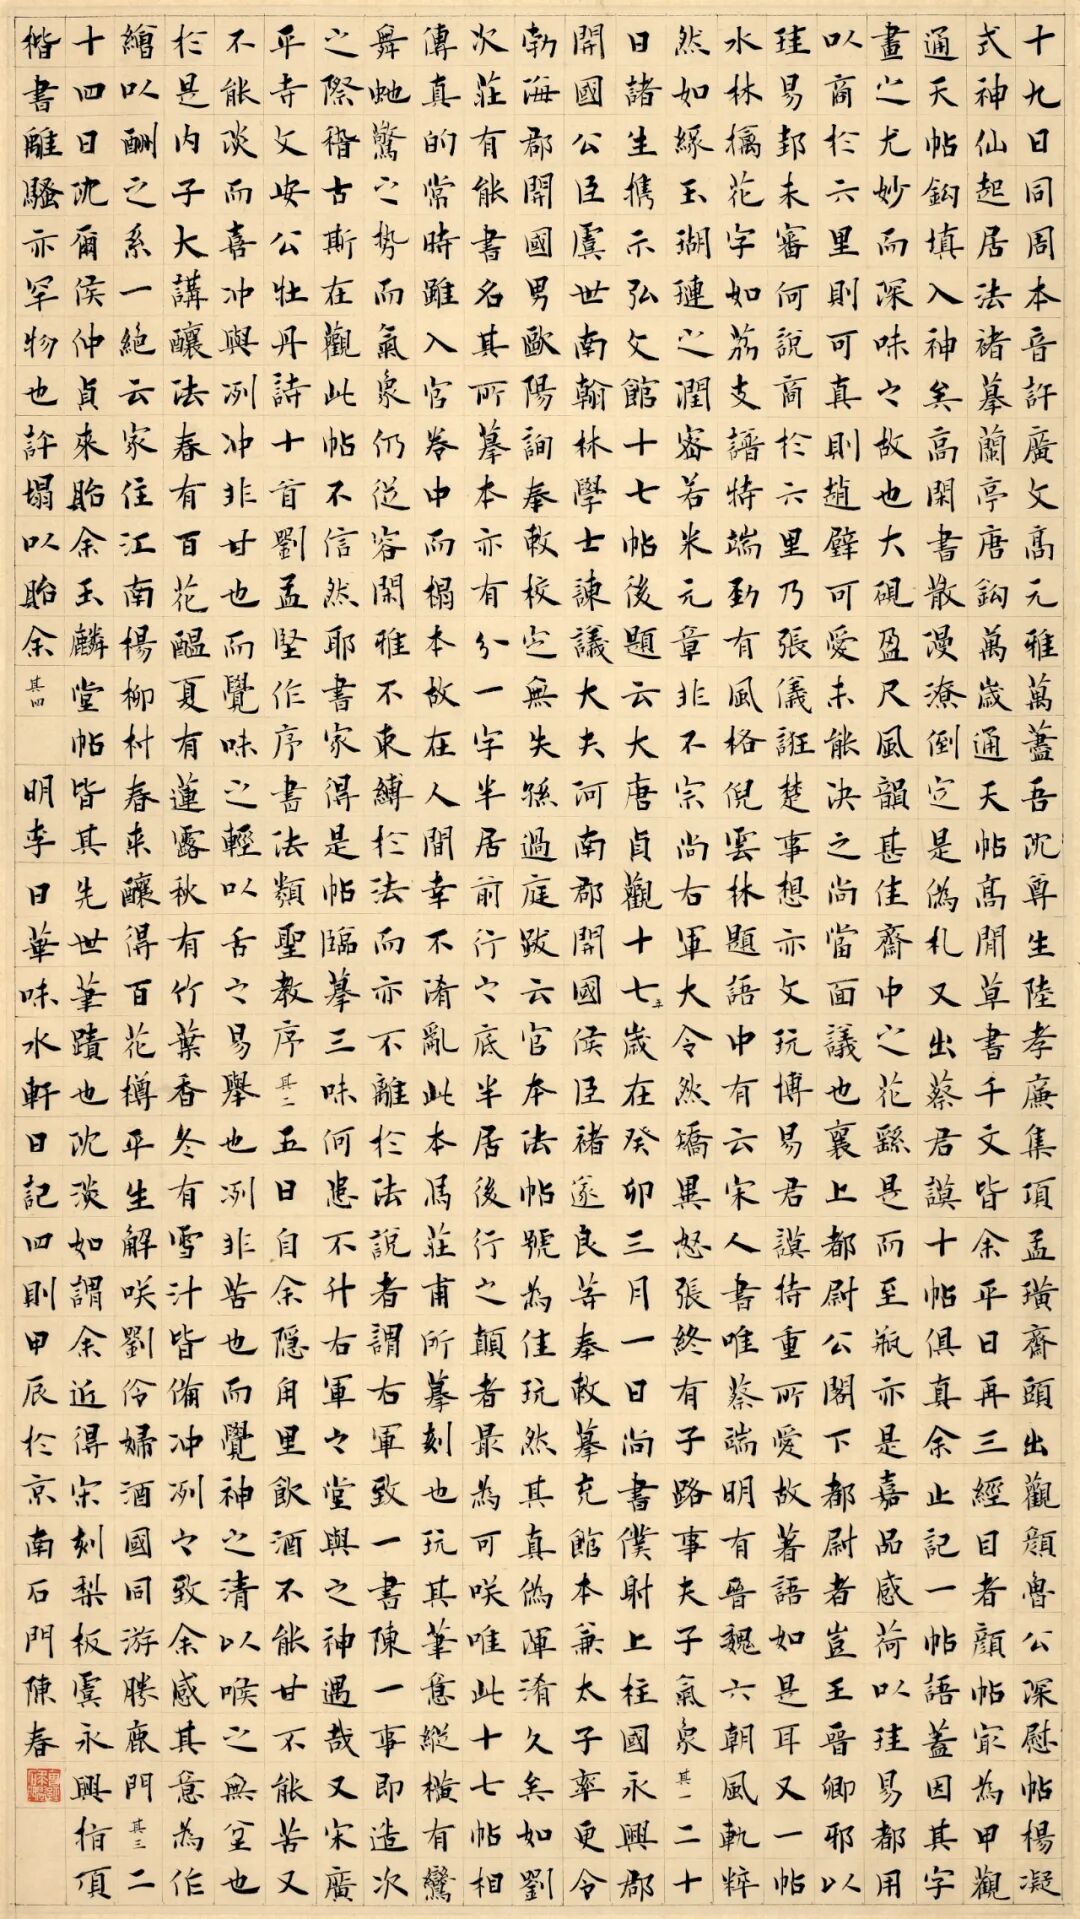 十九日同周本音許廣文高元雅萬蓋吾沈尊生陸孝廉集項孟璜齋頭出觀顏魯公深慰帖楊凝
式神仙起居法褚摹蘭亭唐鈎萬歲通天帖高閒草書千文皆余平日再三經目者顏帖寂為甲觀
通天帖鈎填入神矣高閑書散漫潦倒定是偽札又出蔡君謨十帖俱真余止記一帖語蓋因其字
畫之尤妙而深味之故也大硯盈尺風韻甚佳齋中之花繇是而至瓶亦是嘉品感荷以珪易都用
以商於六里則可真則趙璧可愛未能決之尚當面議也襄上都尉公閣下都尉者豈王晉卿耶以
珪易邽未審何說商於六里乃張儀誑楚事想亦文玩博易君謨特重所愛故著語如是耳又一帖
水林檎花字如荔支譜特端勁有風格倪雲林題語中有云宋人書唯蔡端明有晉魏六朝風軌粹
然如緑玉瑚璉之潤密若米元章非不宗尚右軍大令然矯異怒張終有子路事夫子氣象其一二十
日諸生携示弘文館十七帖後題云大唐貞觀十七年歲在癸卯三月一日尚書僕射上柱國永興郡
開國公臣虞世南翰林學士諫議大夫河南郡開國侯臣褚遂良等奉敕摹充館本兼太子率更令
勃海郡開國男歐陽詢奉敕校定無失孫過庭跋云官本法帖號為佳玩然其真偽渾淆久矣如劉
次莊有能書名其所摹本亦有分一字半居前行之底半居後行之顛者最為可咲唯此十七帖相
傳真的當時雖入官帑中而榻本故在人間幸不淆亂此本馮莊甫所摹刻也玩其筆意縱橫有鸞
舞虵驚之勢而氣象仍從容閑雅不束縛於法而亦不離於法說者謂右軍致一書陳一事即造次
之際稽古斯在觀此帖不信然耶書家得是帖臨摹三味何患不升右軍之堂與之神遇哉又宋廣
平寺文安公牡丹詩十首劉孟堅作序書法類聖教序其二五日自余隱甪里飲酒不能甘不能苦又
不能淡而喜冲與冽冲非甘也而覺味之輕以舌之易舉也冽非苦也而覺神之清以喉之無窒也
於是内子大講釀法春有百花醞夏有蓮露秋有竹葉香冬有雪汁皆備冲冽之致余感其意為作
繪以酬之系一絕云家住江南楊柳村春來釀得百花樽平生解咲劉伶婦酒國同游勝鹿門其三二
十四日沈爾侯仲貞來貽余玉麟堂帖皆其先世筆蹟也沈淡如謂余近得宋刻梨板虞永興指頂
楷書離騷亦罕物也許塌以貽余其四
明李日華味水軒日記四則甲辰於京南石門陳春